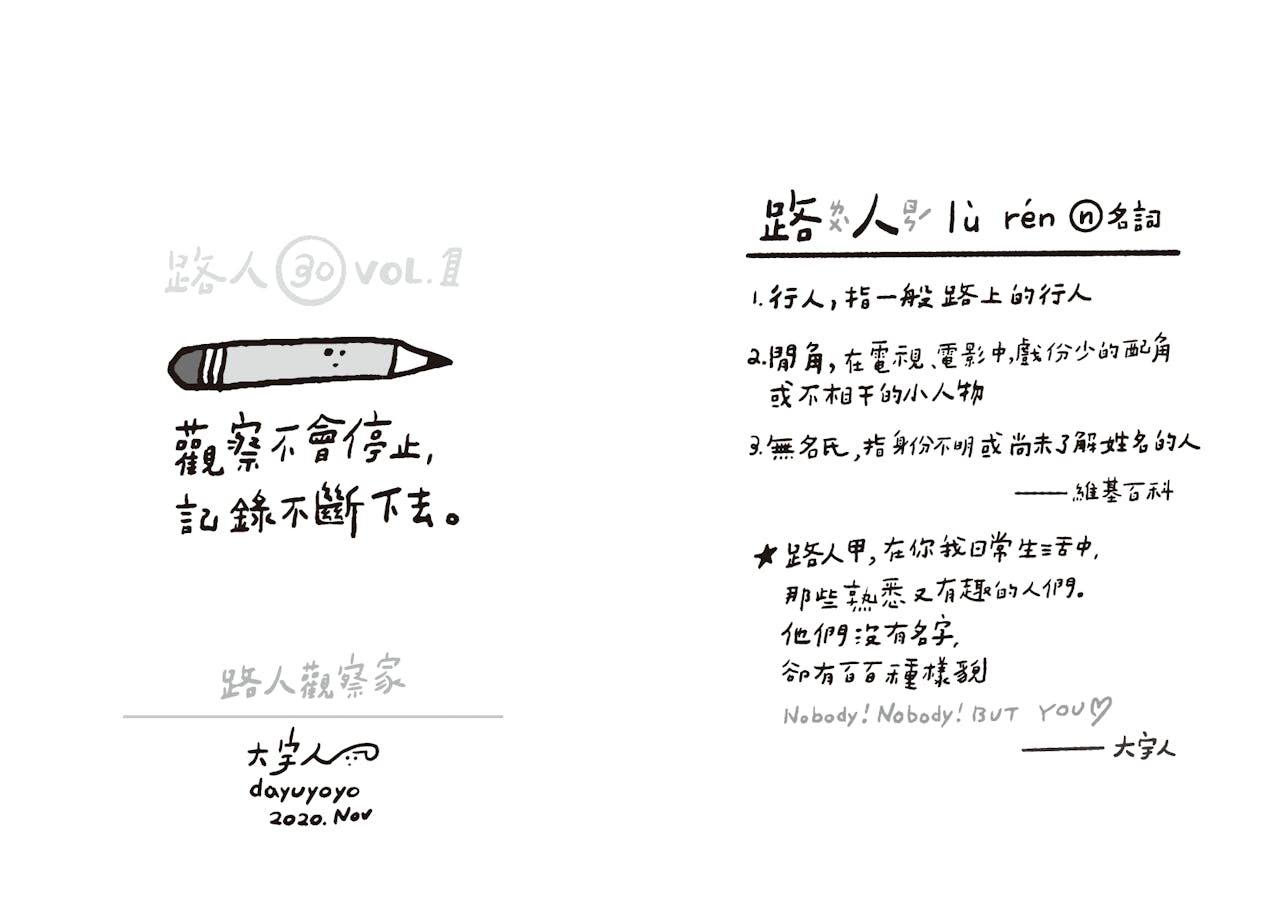 路人 30 VOL.Ⅲ
觀察不會停止,
記錄不斷下去。
路人觀察家
大宇人
dayuyoyo
2020. Nov
路ㄌㄨˋ人ㄖㄣˊ lù rén ⓝ名詞
1. 行人, 指一般路上的行人
2. 閒角, 在電視、電影中, 戲份少的配角
或不相干的小人物
3. 無名氏, 指身份不明或尚未了解姓名的人
——維基百科
★ 路人甲, 在你我日常生活中,
那些熟悉又有趣的人們。
他們沒有名字,
卻有百百種樣貌
Nobody! Nobody! BUT YOU♡
——大宇人